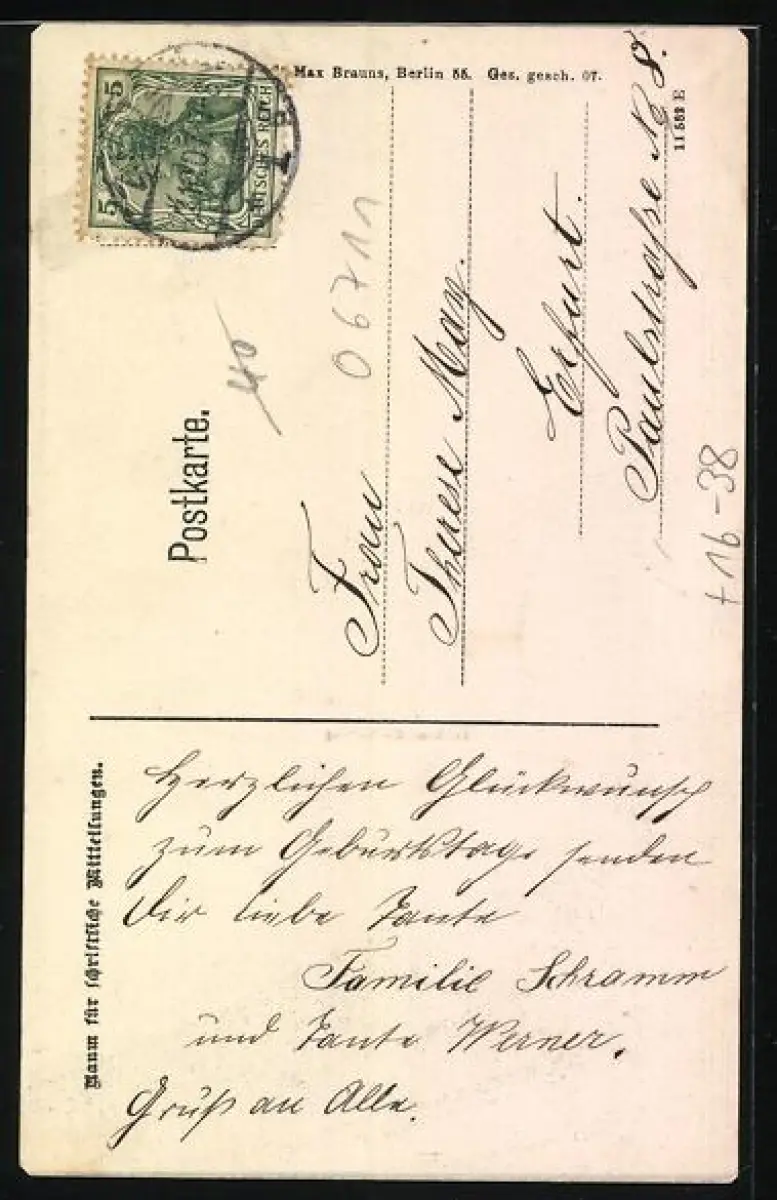 Max Brauns, Berlin 55. Ges. gesch. 07.
5
5
DEUTSCHES REICH
Postkarte.
06711
Frau
Therese May.
Erfurt.
Paulstraße No 8.
11582 E
+16-38
Raum für schriftliche Mitteilungen.
Herzlichen Glückwunsch
zum Geburtstage senden
Dir liebe Tante
Familie Schramm
und Tante Werner.
Gruß an Alle.